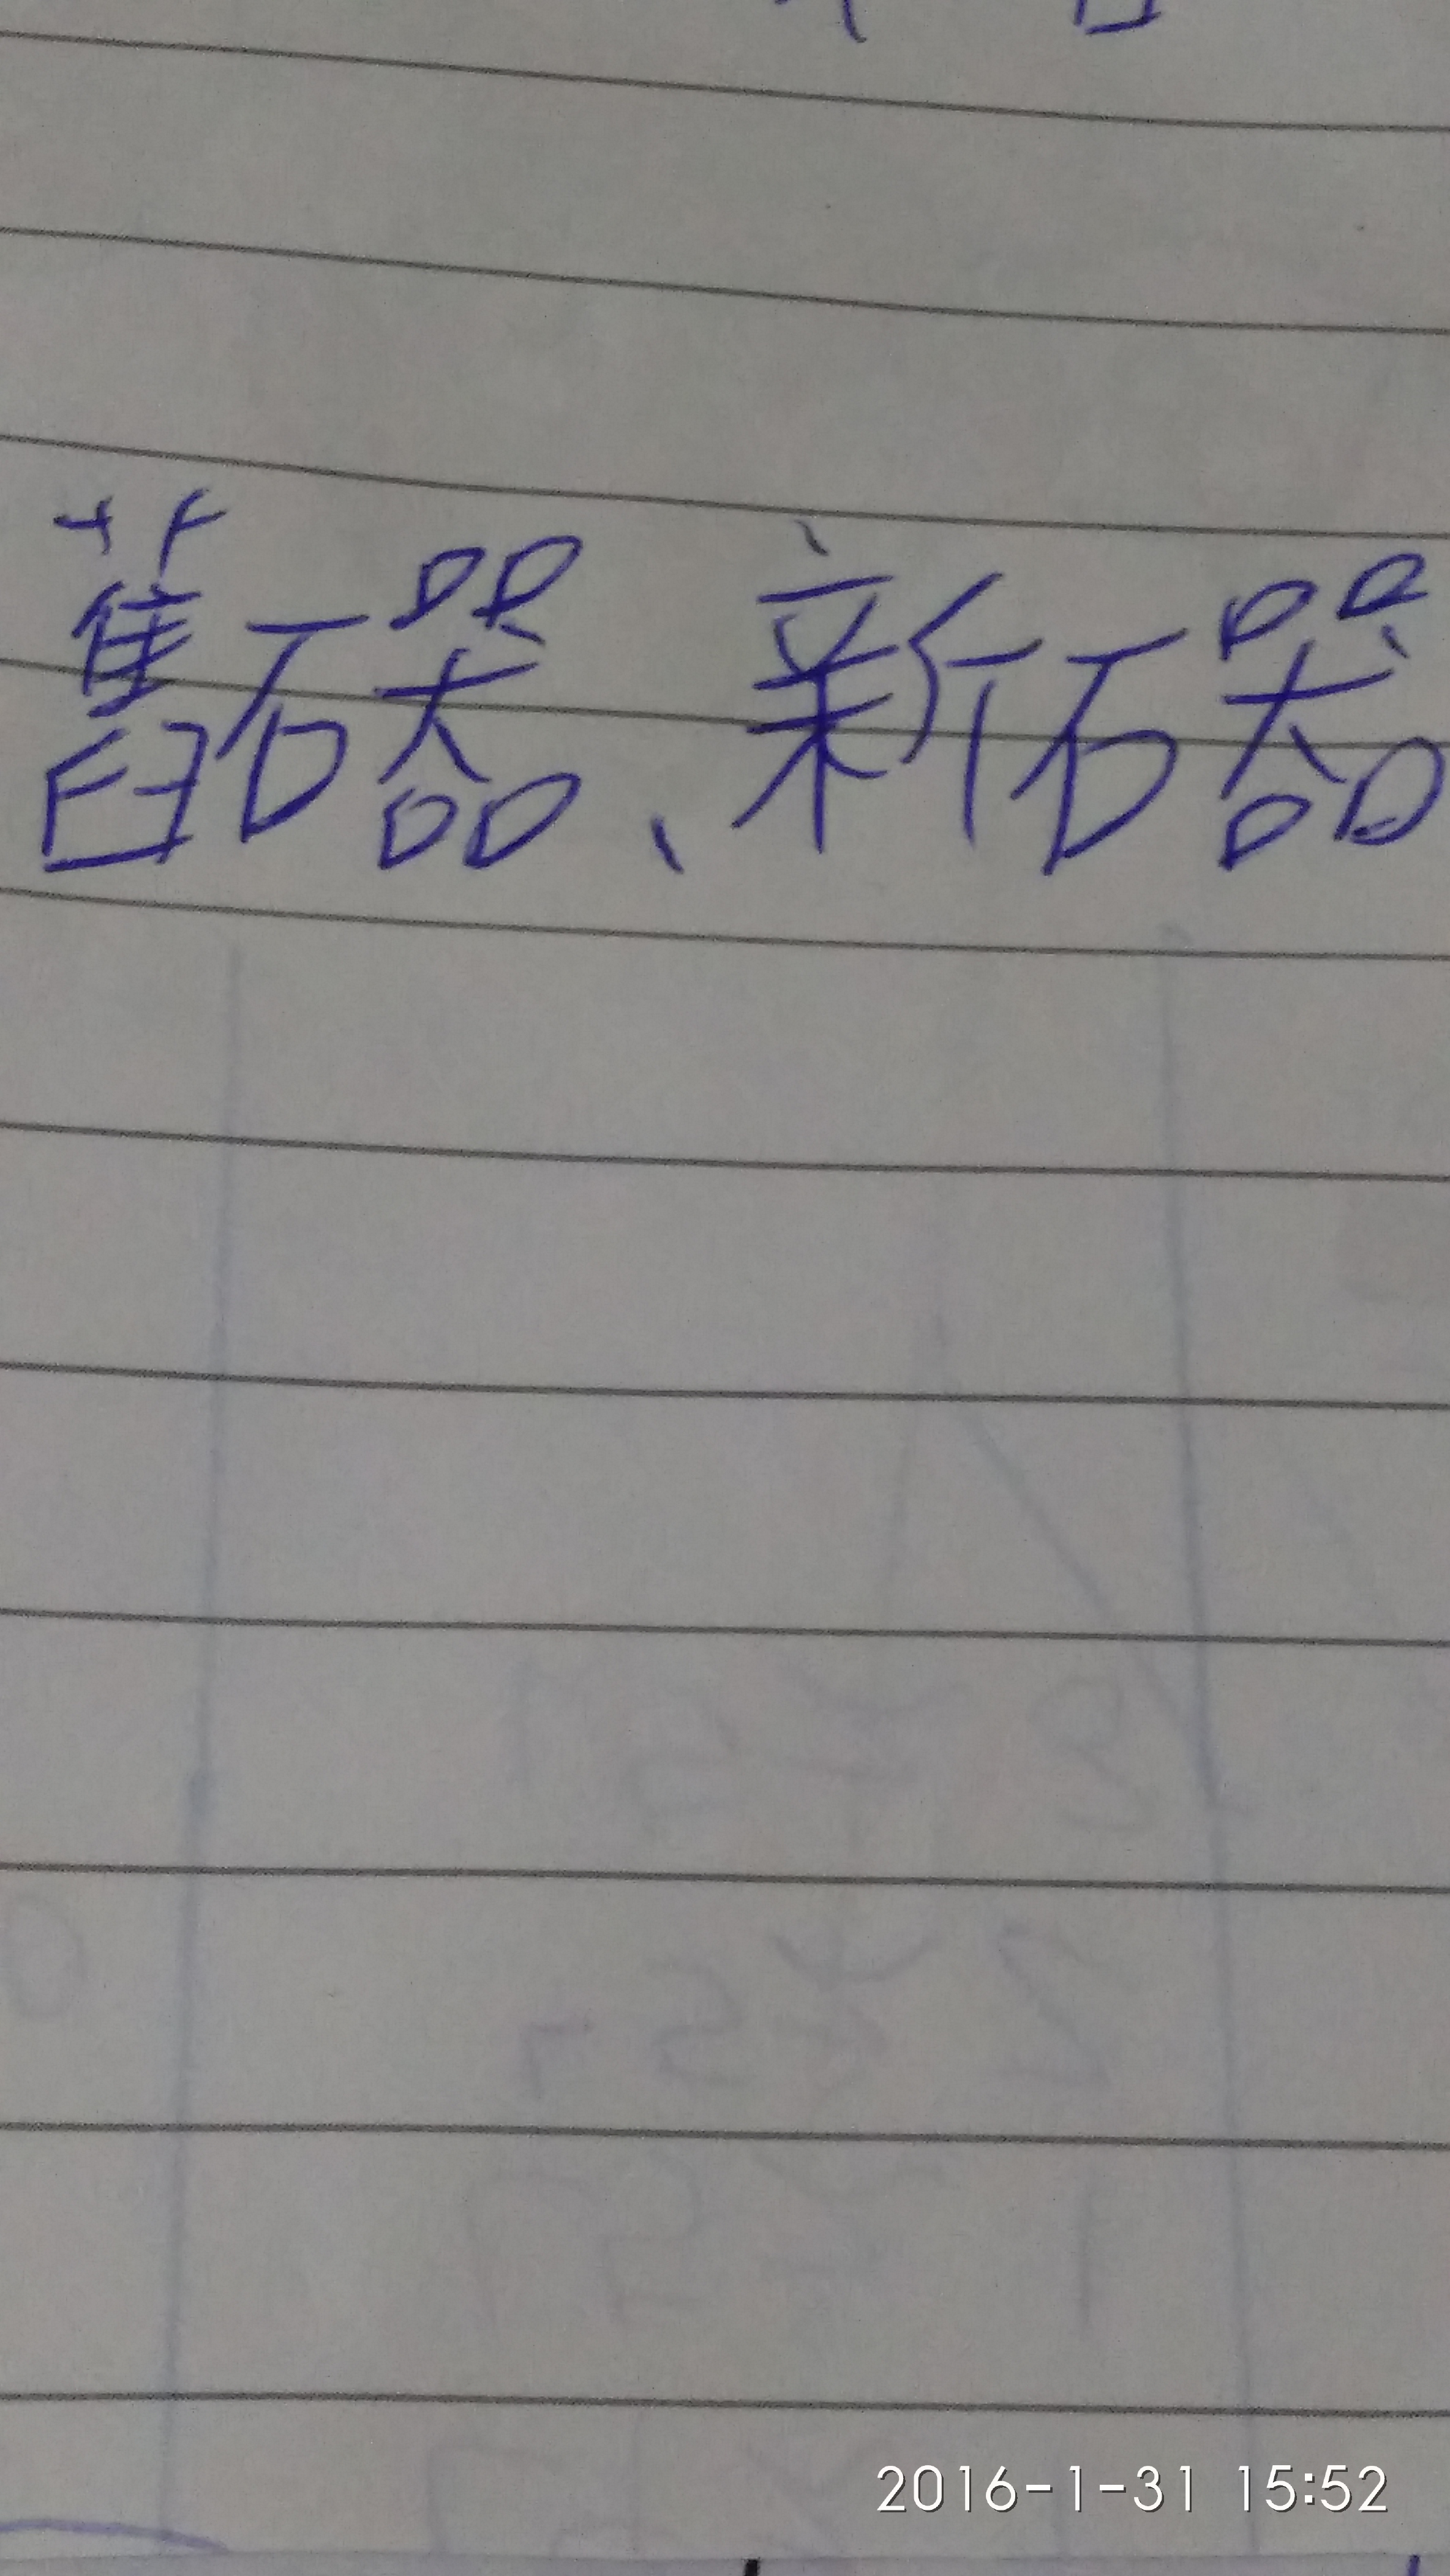 舊石器、新石器
2016-1-31 15:52